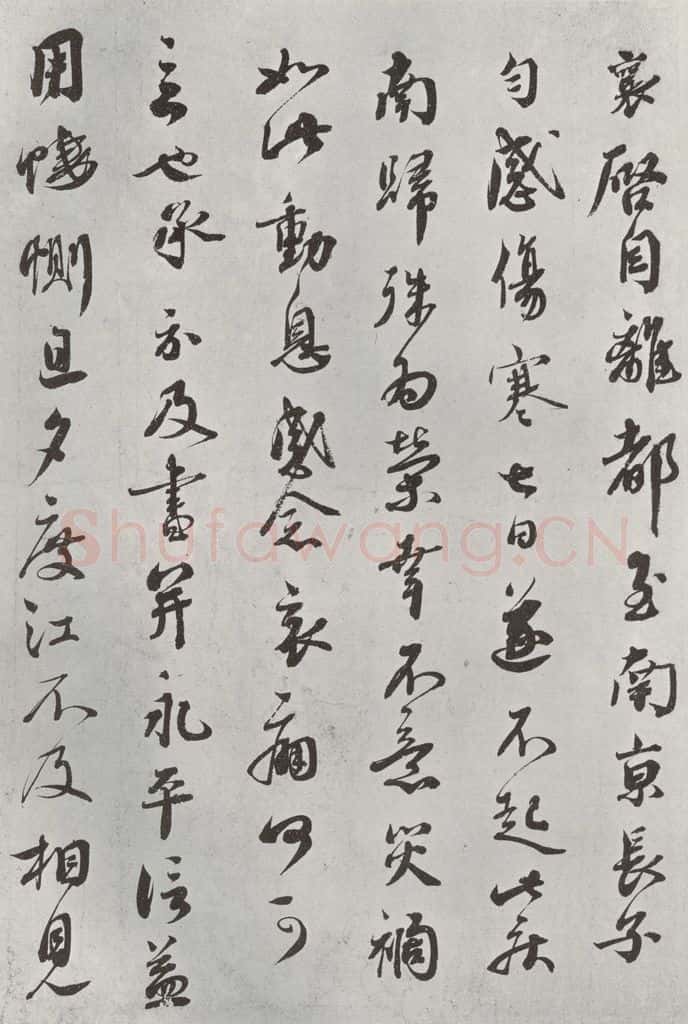 襄啓自離都至南京長子
勻感傷寒七日遂不起此疾
南歸殊為榮幸不意災禍
如此動息感念哀痛何可
言也承示及書并永平信益
用悽惻旦夕度江不及相見
Shufawang.CN